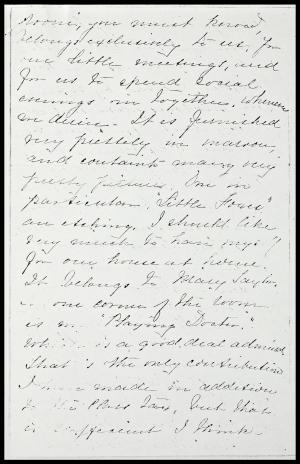 Room, you must know,
belongs exclusively to us, for
our little meetings, and
for us to spend social
evenings in together, whenever
we desire. It is furnished
very prettily in maroon,
and contains many very
pretty pictures. One in
particular, "Little Foxes"
an etching, I should like
very much to have
for our house at home.
It belongs to Mary Taylor.
one corner of the room,
is my "Playing Doctor,"
which is a good deal admired.
That is the only contribution
I have made in addition
to the Class Tax, but that
is sufficient I think.